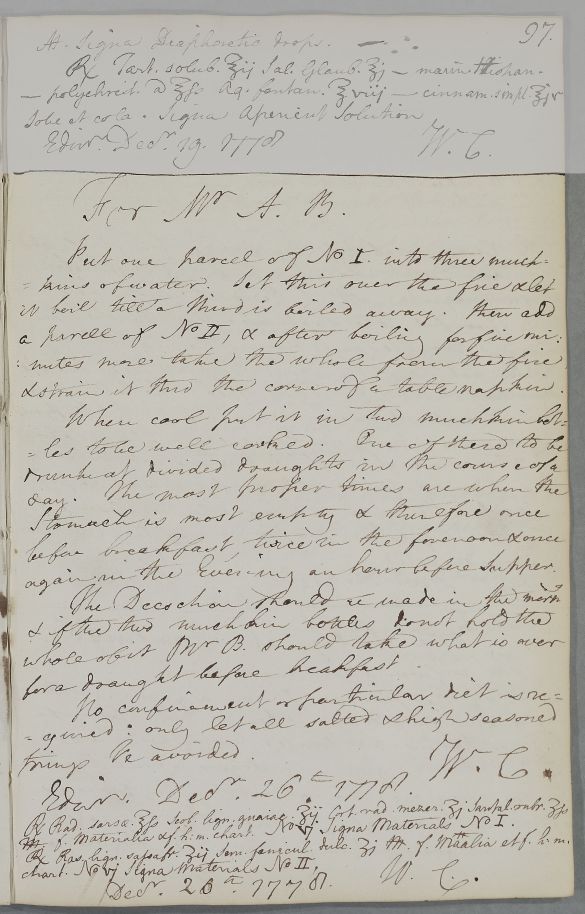 97.
At. Signa Diaphoretic drops.
℞ Tart. solub. ℥ij Sal. Glaub. ℥j — marin
— polychrest. a ℥ss Aq. fontan. ℥viij — cinnam. simpl. ℥jv
Solve et cola. Signa Aperient Solution
Edinr. Decr. 19. 1778 W. C.
For Mr A. B.
Put one parcel of No I. into three much-
=kins of water. Set this over the fire & let
it boil till a third is boiled away. then add
a parcel of No II, & after boiling for five mi:
:nutes more take the whole from the fire
& strain it thro the corner of a table napkin.
When cool put it in two muchkin bot=
=les to be well corked. One of these to be
drunk at divided draughts in the course of a
day. The most proper times are when the
Stomach is most empty & therefore once
before breakfast, twice in the forenoon & once
again in the Evening an hour before Supper.
The Decoction should be made in the morng
& if the two muchkin bottles do not hold the
whole of it Mr B. should take what is over
for a draught before breakfast.
No confinement or particular diet is re=
=quired: only let all salted & high seasoned
things be avoided. W. C.
Edinr. Decr. 26th 1778
℞ Rad. sarsæ. ℥ss Scob. lign. guaiac. ℥ij Cort. rad. mezer. ʒj Santal. rubr. ℥ss
M. f. Materialia & f. h. m. chart. No vj Signa Materials No I.
℞ Ras. lign. sassafr. ℥ij Sem. fœnicul. dulc. ʒj M. f. Mtialia et f. h. m.
chart. No vj Signa Materials No II,
Decr. 26th 1778. W. C.